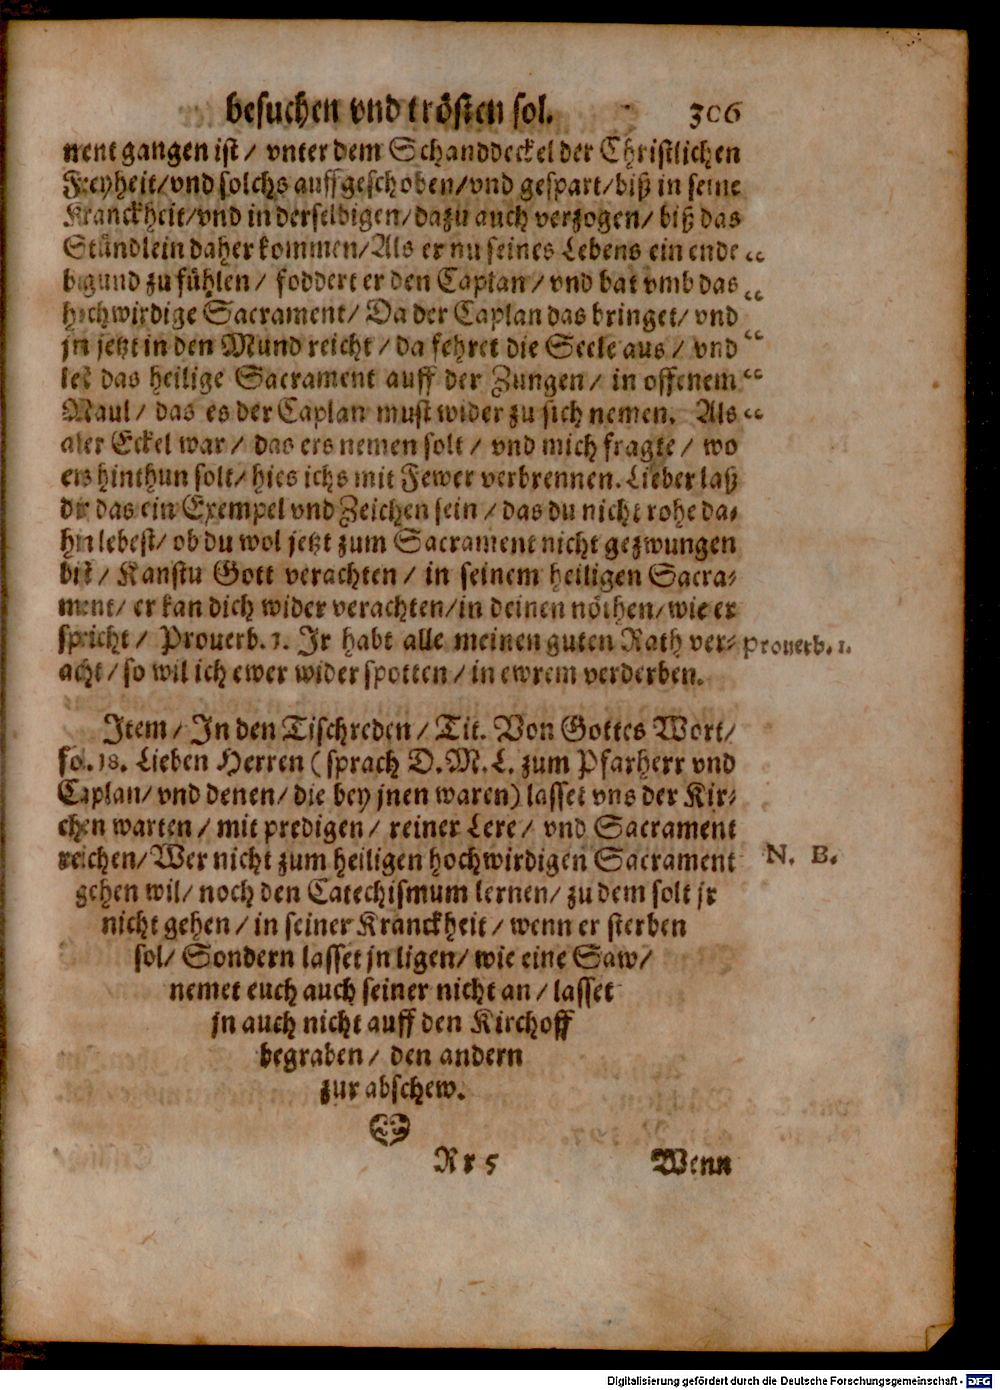 besuchen vnd trösten sol. 306
ment gangen ist / vnter dem Schanddeckel der Christlichen
Freyheit/vnd solchs auffgeschoben/vnd gespart/biß in seine
Kranckheit/vnd in derselbigen/dazu auch verzogen/ biß das
Stündlein daher kommen/Als er nu seines Lebens ein ende
bgund zu fühlen / foddert er den Caplan / vnd bat vmb das
hochwirdige Sacrament/ Da der Caplan das bringet/ vnd
jn jetzt in den Mund reicht / da fehret die Seele aus / vnd
let das heilige Sacrament auff der Zungen / in offenem
Maul / das es der Caplan must wider zu sich nemen. Als
aber Eckel war / das ers nemen solt / vnd mich fragte / wo
ers hinthun solt/ hies ichs mit Fewer verbrennen. Lieber laß
dir das ein Exempel vnd Zeichen sein / das du nicht rohe da-
hin lebest/ ob du wol jetzt zum Sacrament nicht gezwungen
bist / Kanstu Gott verachten / in seinem heiligen Sacra-
ment/ er kan dich wider verachten/in deinen nöthen/wie er
spricht / Prouerb. 1. Jr habt alle meinen guten Rath ver-
Prouerb. 1.
acht / so wil ich ewer wider spotten / in ewrem verderben.
Jtem / Jn den Tischreden / Tit. Von Gottes Wort/
fo. 18. Lieben Herren (sprach D.M.L. zum Pfarherr vnd
Caplan/ vnd denen/ die bey jnen waren) lasset vns der Kir-
chen warten / mit predigen / reiner Lere / vnd Sacrament
reichen/ Wer nicht zum heiligen hochwirdigen Sacrament
N. B.
gehen wil/ noch den Catechismum lernen/ zu dem solt jr
nicht gehen / in seiner Kranckheit / wenn er sterben
sol/ Sondern lasset jn ligen/ wie eine Saw/
nemet euch auch seiner nicht an / lasset
jn auch nicht auff den Kirchoff
begraben / den andern
zur abschew.
Rr 5 Wenn
Digitalisierung gefördert durch die Deutsche Forschungsgemeinschaft - DFG